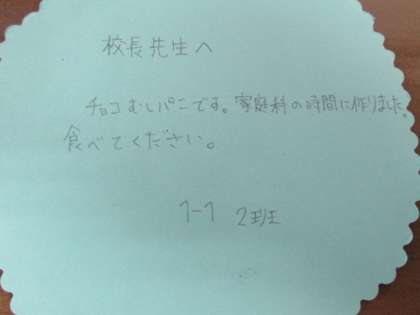 校長先生へ
チョコむしパンです。家庭科の時間に作りました。
食べてください。
1-1 2班